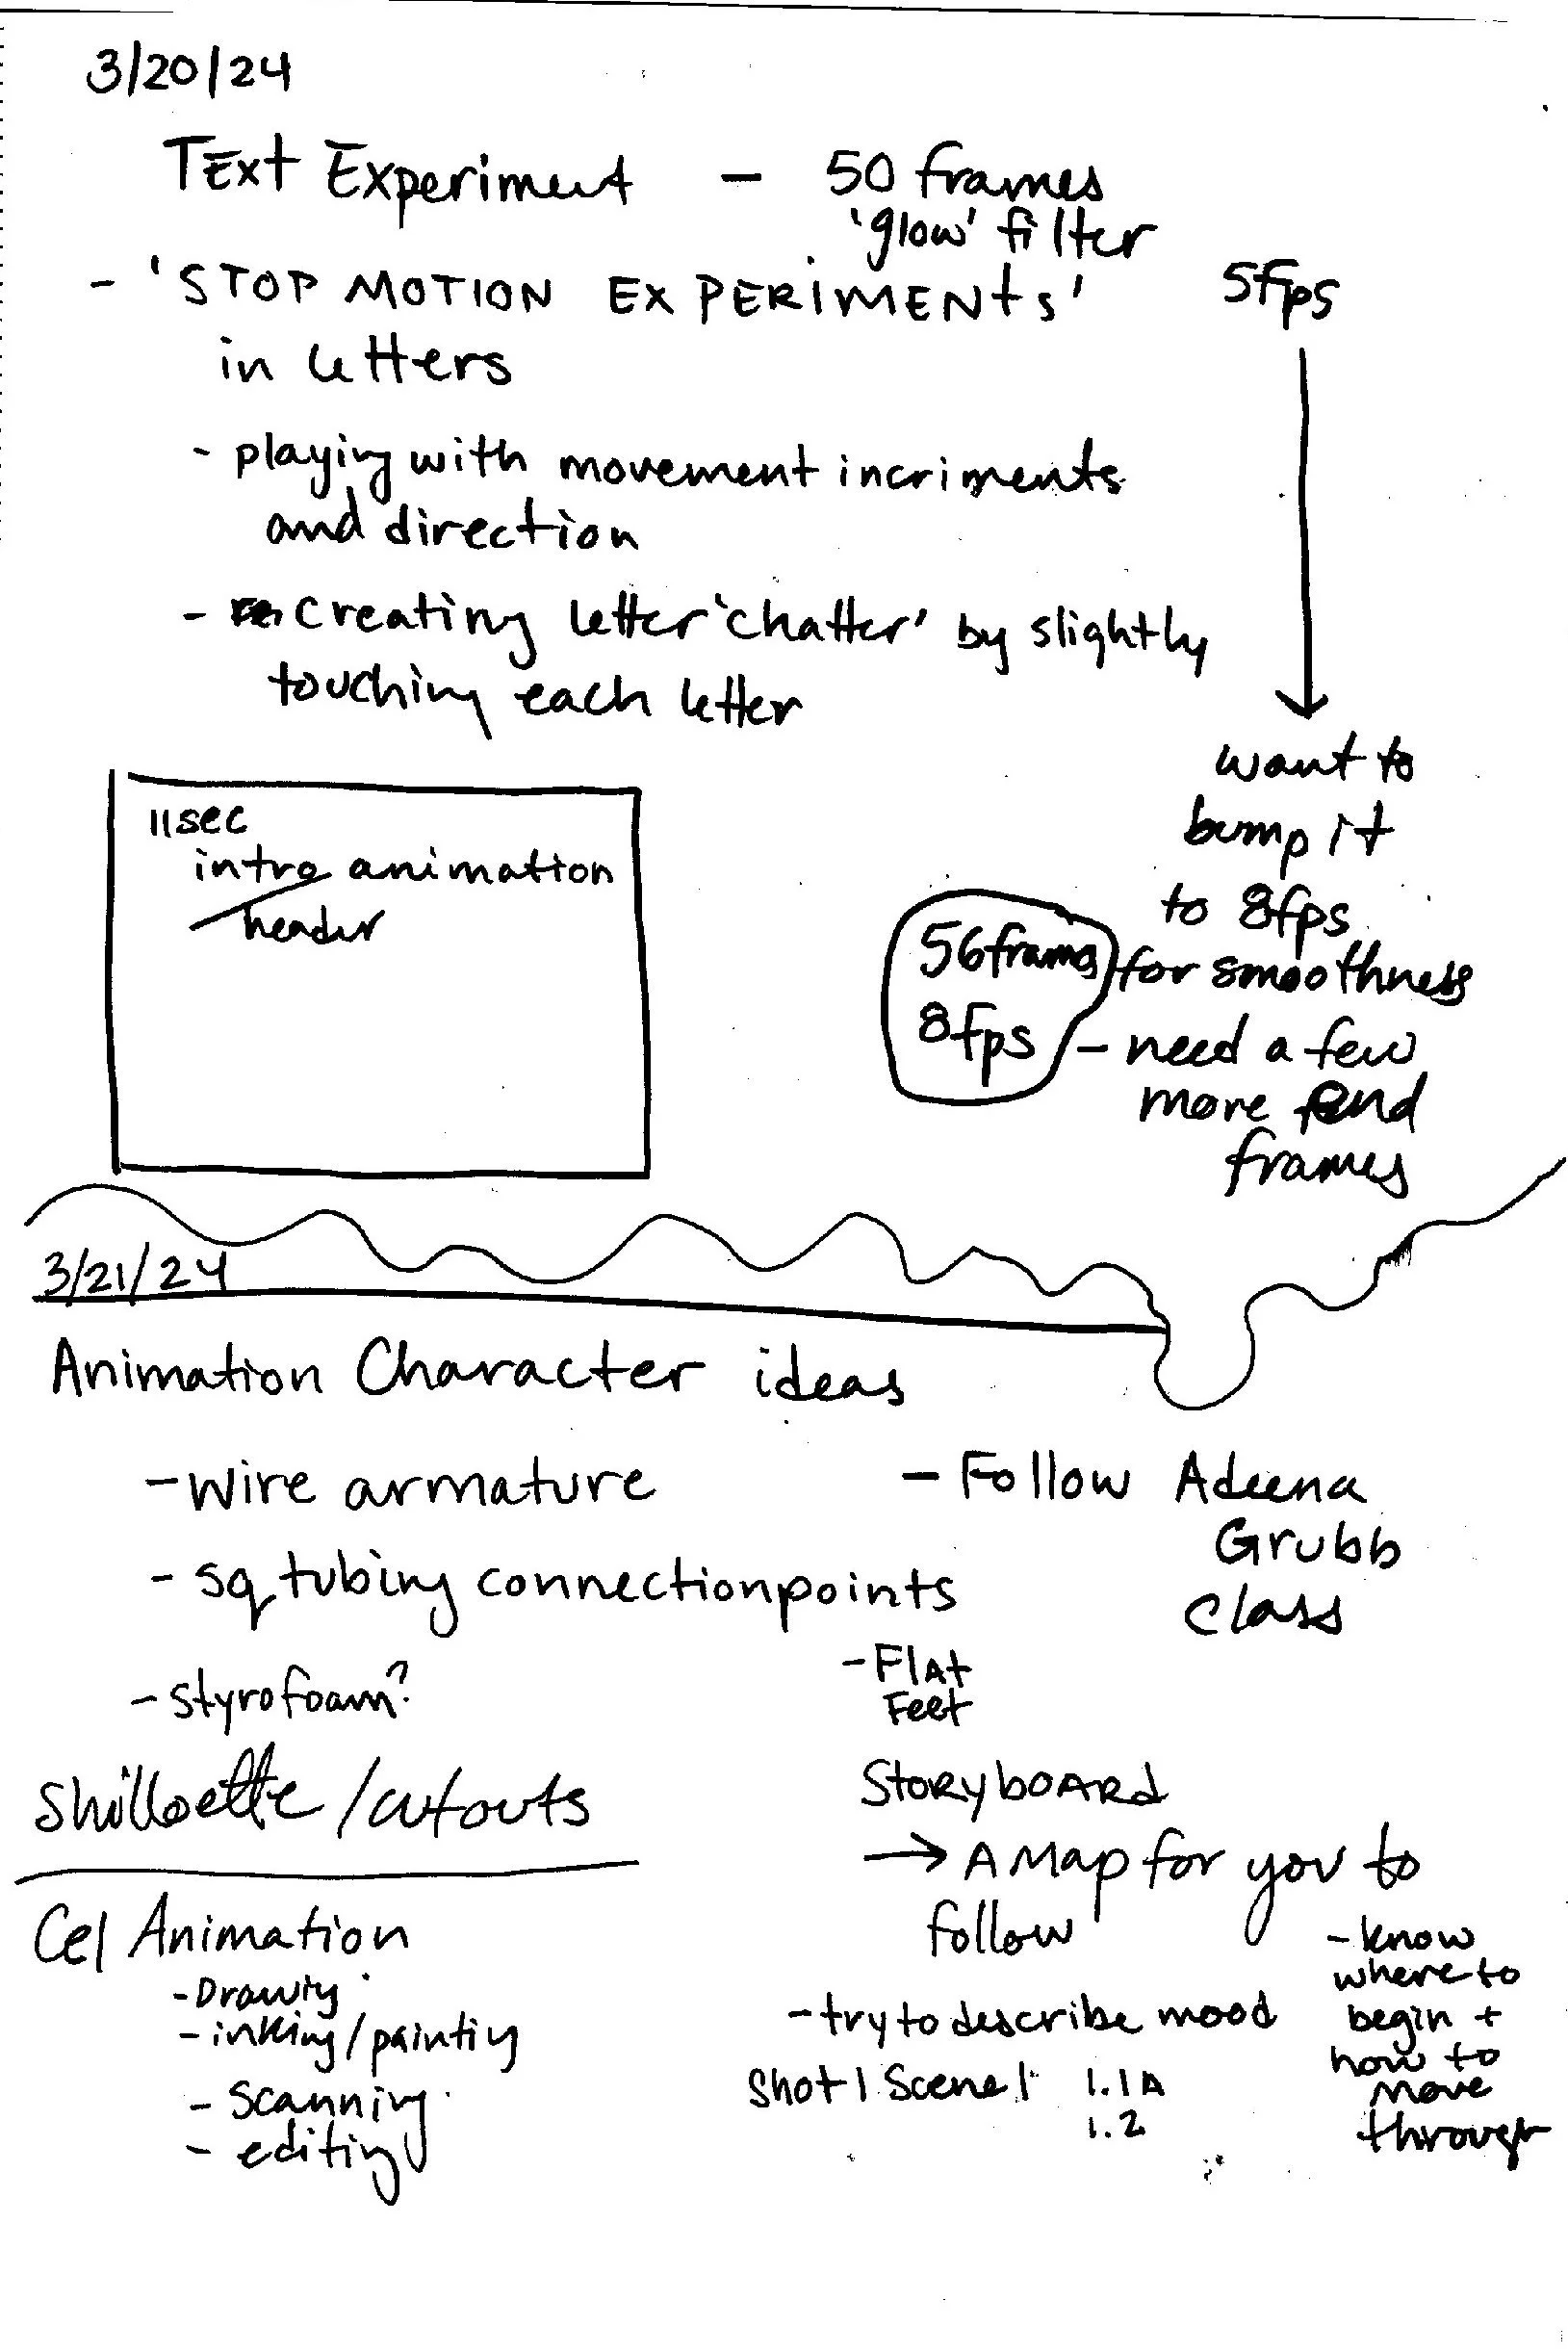 3/20/24
Text Experiment — 50 frames
'glow' filter
- 'STOP MOTION EXPERIMENts'
in letters
5fps
- playing with movement incriments
and direction
- creating letter 'chatter' by slightly
touching each letter
want to
bump it
to 8fps
for smoothness
- need a few
more end
frames
56 frames
8fps
11sec
intro animation
header
3/21/24
Animation Character ideas
- wire armature
- sq tubing connection points
- styrofoam?
- Follow Adeena
Grubb
class
- Flat
Feet
Shilloette/cutouts
Cel Animation
- Drawing
- inking/painting
- scanning
- editing
StoryboARd
→ A Map for you to
follow
- know
where to
begin +
how to
move
through
- try to describe mood
Shot 1 Scene 1 1.1A
1.2